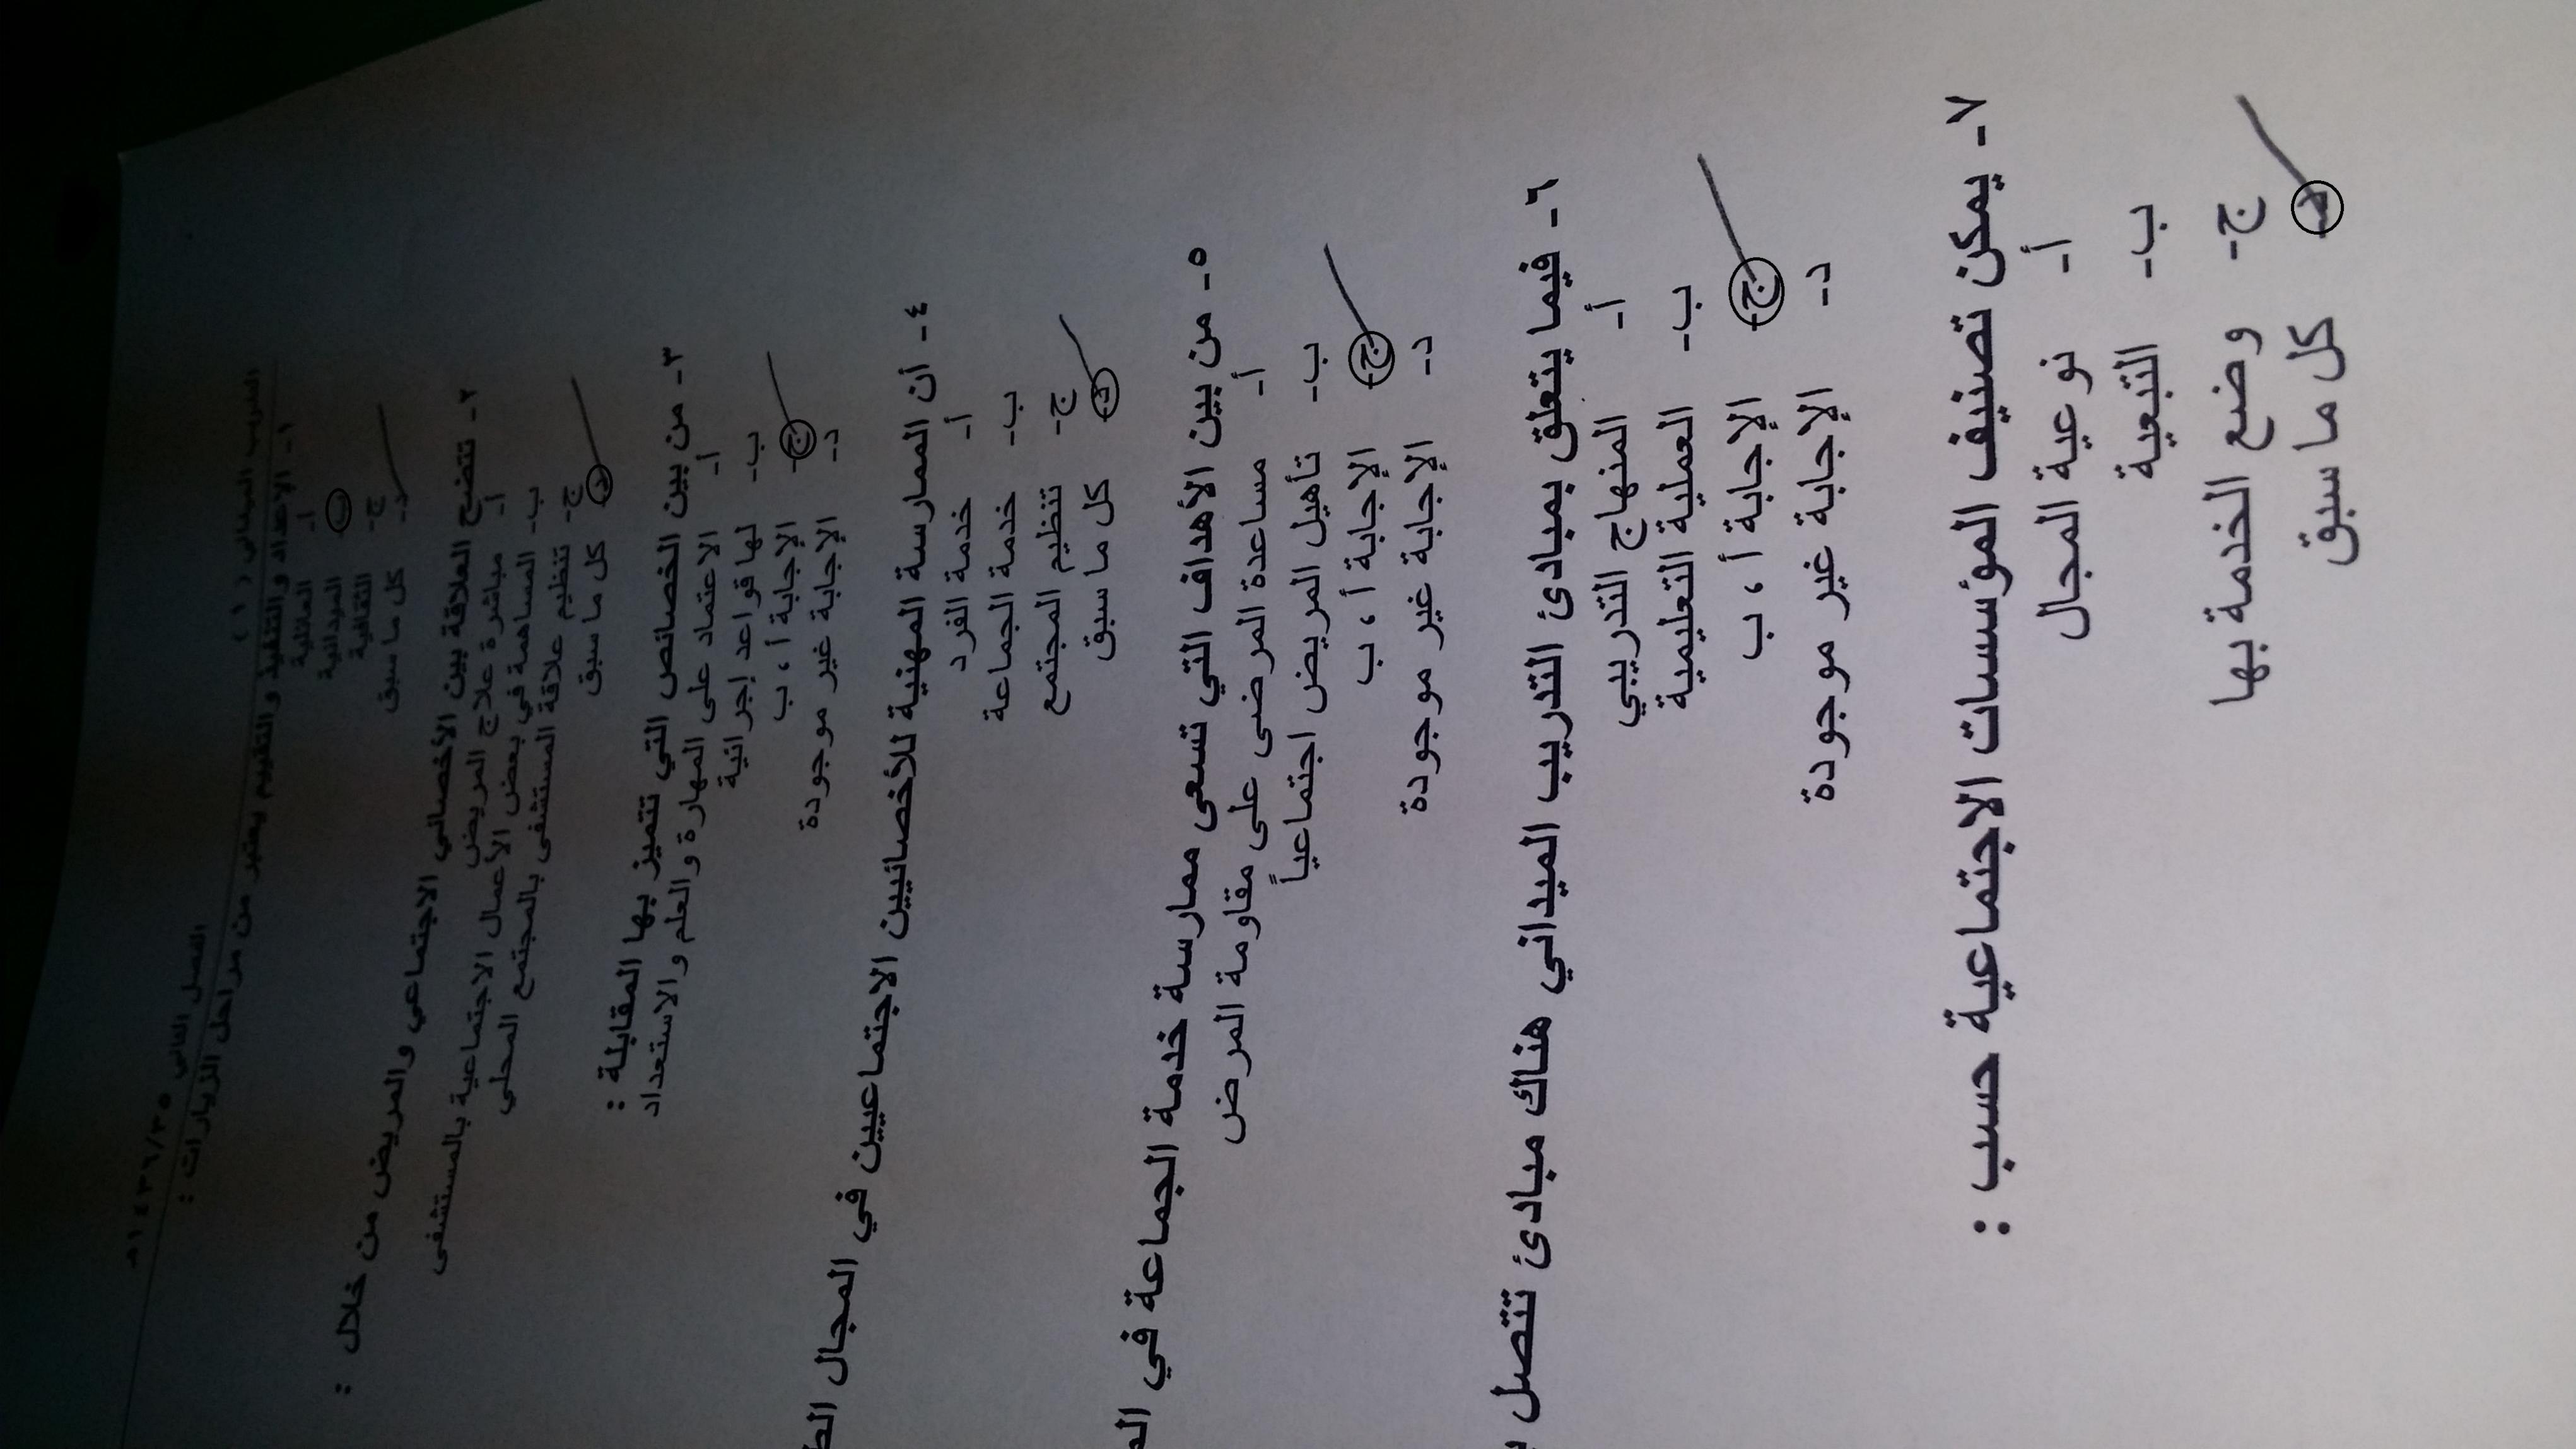 التدريب الميداني ( ١ ) الفصل الثاني ١٤٣٦/٣٥هـ
١- الاعداد والتنفيذ والتقييم يعتبر من مراحل الزيارات :
أ- العائلية
ب- الميدانية
ج- الثقافية
د- كل ما سبق
٢- تتضح العلاقة بين الأخصائي الاجتماعي والمريض من خلال :
أ- مباشرة علاج المريض
ب- المساهمة في بعض الأعمال الاجتماعية بالمستشفى
ج- تنظيم علاقة المستشفى بالمجتمع المحلي
د- كل ما سبق
٣- من بين الخصائص التي تتميز بها المقابلة :
أ- الاعتماد على المهارة والعلم والاستعداد
ب- لها قواعد إجرائية
ج- الإجابة أ ، ب
د- الإجابة غير موجودة
٤- أن الممارسة المهنية للأخصائيين الاجتماعيين في المجال
أ- خدمة الفرد
ب- خدمة الجماعة
ج- تنظيم المجتمع
د- كل ما سبق
٥- من بين الأهداف التي تسعى ممارسة خدمة الجماعة في
أ- مساعدة المرضى على مقاومة المرض
ب- تأهيل المريض اجتماعياً
ج- الإجابة أ ، ب
د- الإجابة غير موجودة
٦- فيما يتعلق بمبادئ التدريب الميداني هناك مبادئ تتصل
أ- المنهاج التدريبي
ب- العملية التعليمية
ج- الإجابة أ ، ب
د- الإجابة غير موجودة
٧- يمكن تصنيف المؤسسات الاجتماعية حسب :
أ- نوعية المجال
ب- التبعية
ج- وضع الخدمة بها
د- كل ما سبق